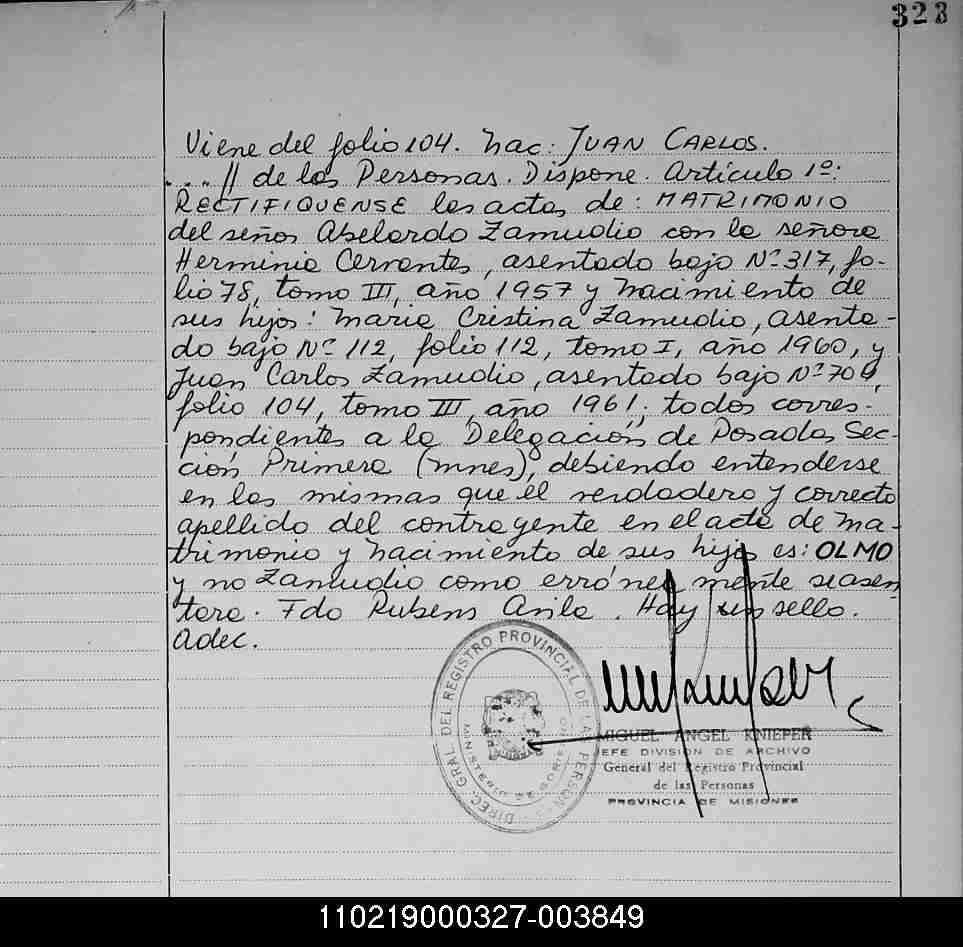 323
Viene del folio 104. Nac: JUAN CARLOS.
....// de las Personas. Dispone. Artículo 1º:
RECTIFIQUENSE las actas de: MATRIMONIO
del señor Abelardo Zamudio con la señora
Herminia Cervantes, asentado bajo Nº 317, fo-
lio 78, tomo III, año 1957 y Nacimiento de
sus hijos: Maria Cristina Zamudio, asenta-
do bajo Nº 112, folio 112, tomo I, año 1960, y
Juan Carlos Zamudio, asentado bajo Nº
folio 104, tomo III, año 1961; todos corres-
pondientes a la Delegación de Posadas Sec-
ción Primera (mnes), debiendo entenderse
en las mismas que el verdadero y correcto
apellido del contragente en el acta de Ma-
trimonio y Nacimiento de sus hijos es: OLMO
y no Zamudio como erróneamente se asen
tara. Fdo Rubens Avila. Hay un sello.
Adec.
DIREC. GRAL DEL REGISTRO PROVINCIAL DE LAS PERSONAS
MINISTERIO DE GOBIERNO
MIGUEL ANGEL KNIEPER
JEFE DIVISION DE ARCHIVO
General del Registro Provincial
de las Personas
PROVINCIA DE MISIONES
110219000327-003849